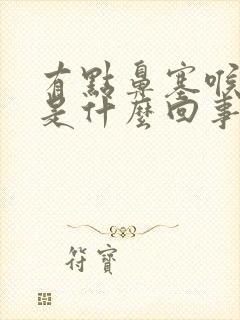 有點鼻塞喉
是什麼回事
符寶